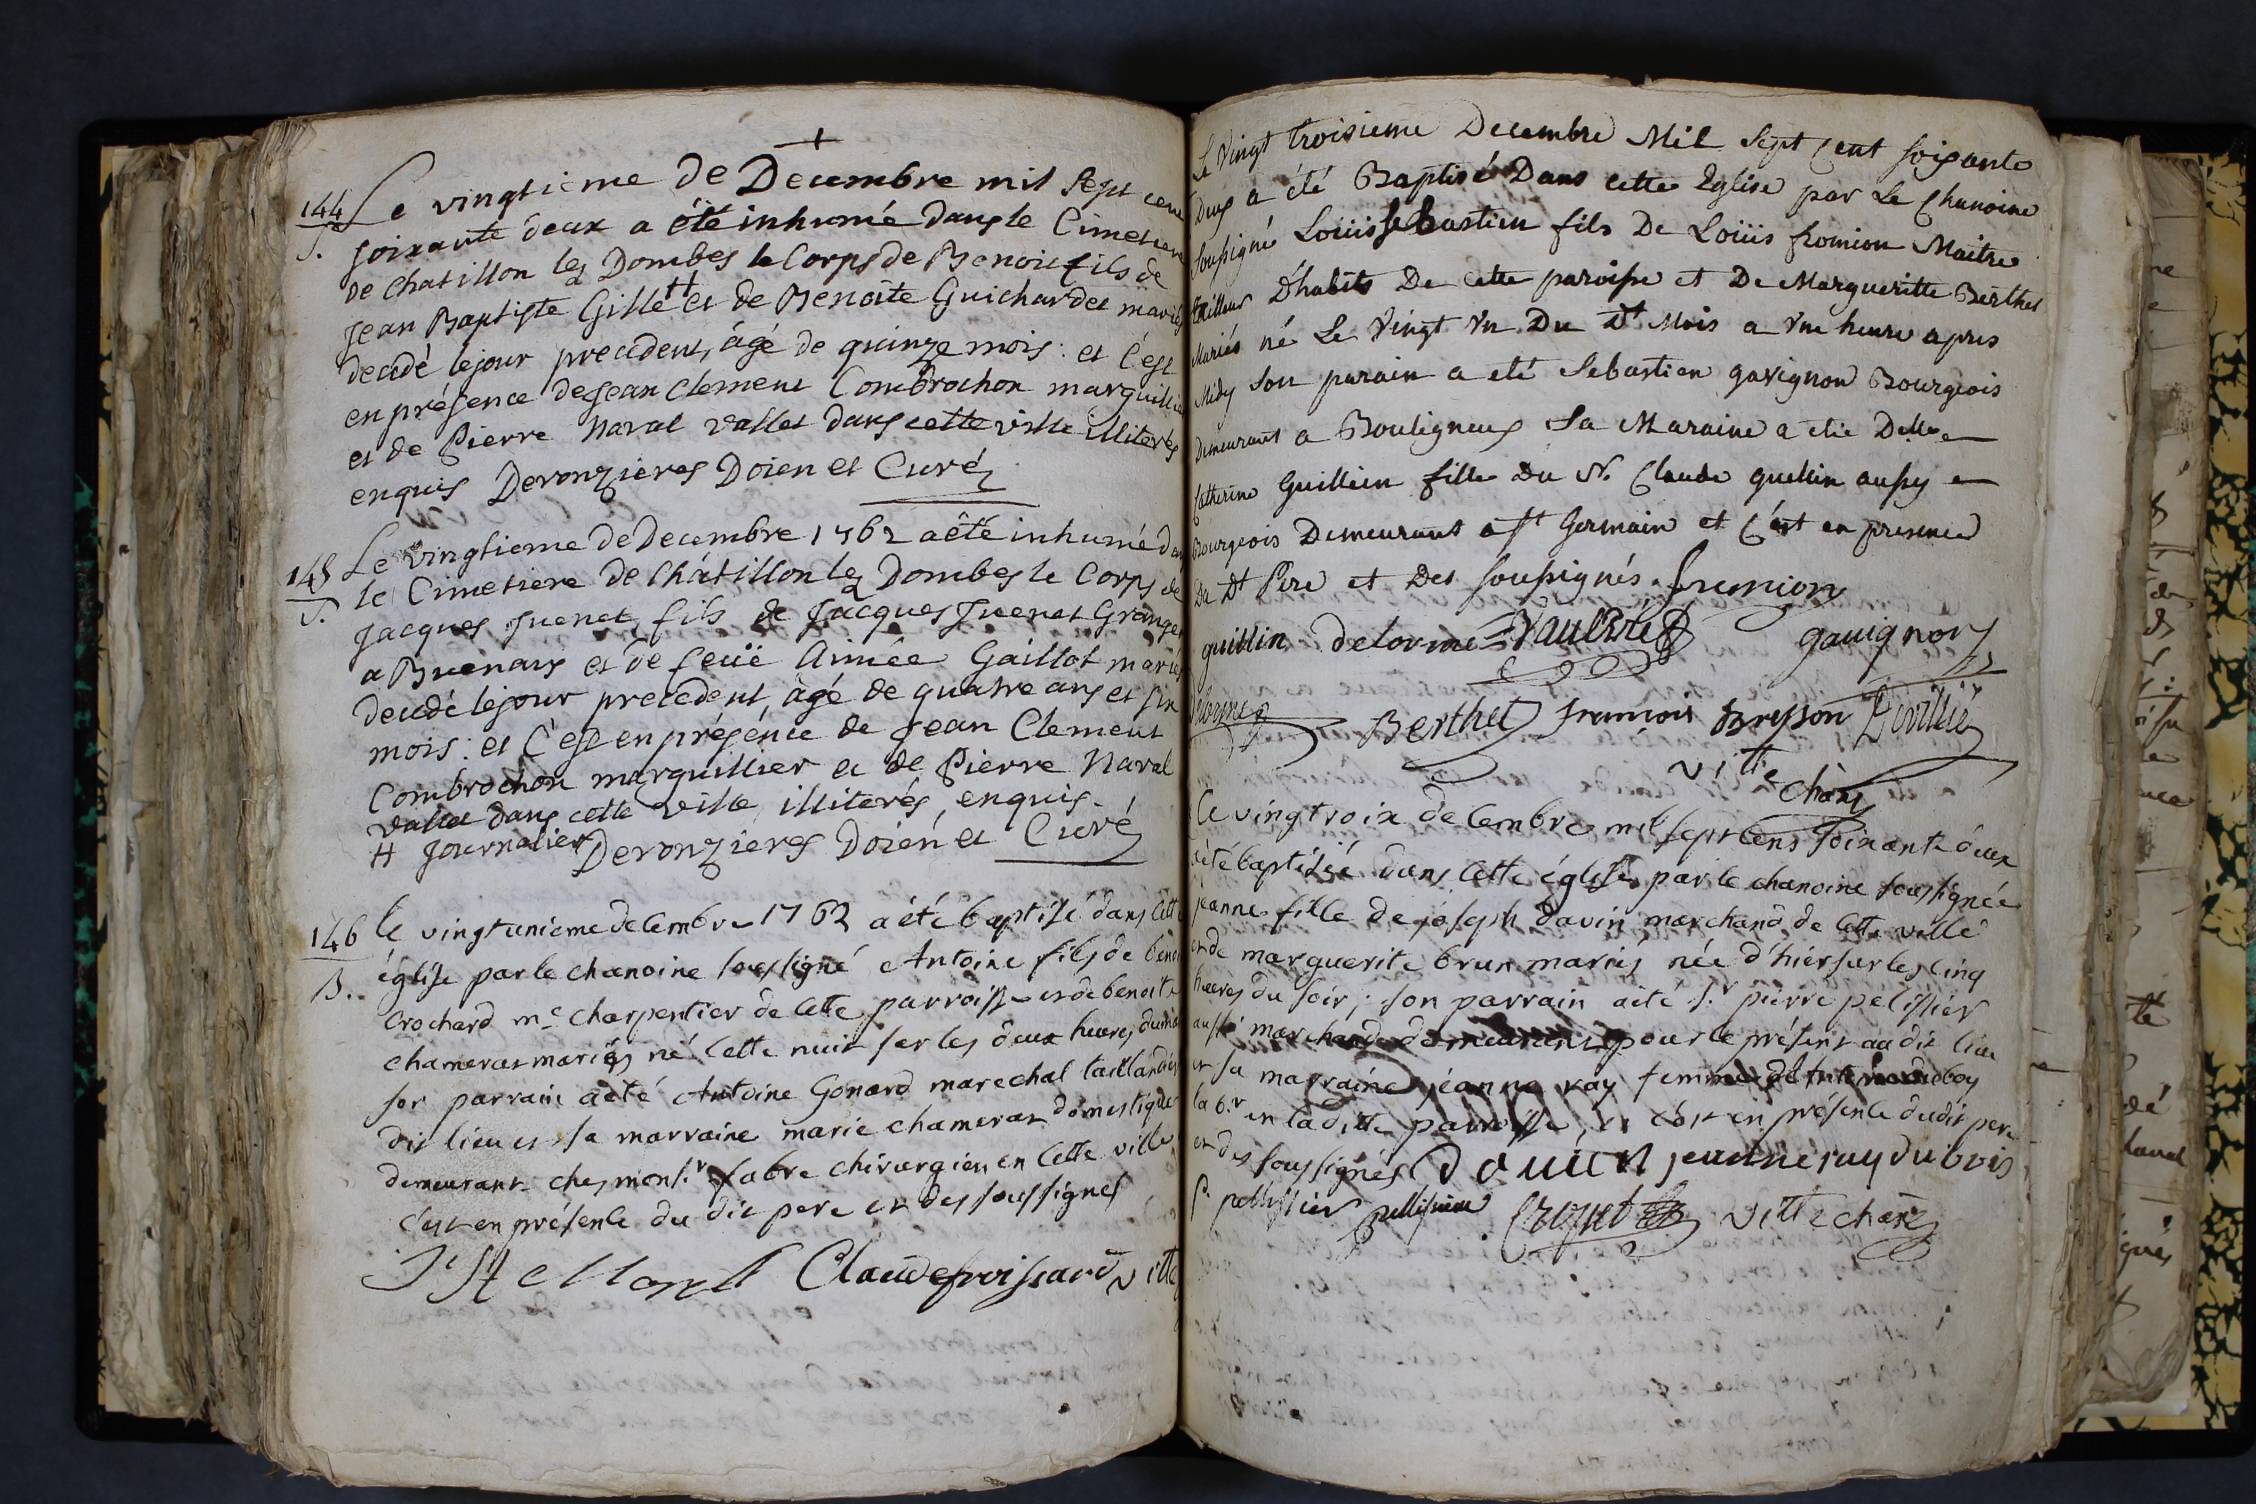 144
S.
Le vingtieme de Decembre mil Sept cent
soixante deux a été inhumé dans le Cimetiere
de Chatillon les Dombes le Corps de Benoit fils de
Jean Baptiste Gille # et de Benoîte Guichardet mariés
decédé le jour precedent, âgé de quinze mois : et c'est
en présence de Jean Clement Combrochon marguillier
et de Pierre Naral vallet dans cette ville illiterés
enquis Deronzieres Doien et Curé
145
S.
Le vingtieme de Decembre 1762 a été inhumé dans
le Cimetiere de Châtillon les Dombes le Corps de
Jacques Juenet fils de Jacques Juenet Granger
a Buenans et de feuë Aimée Gaillot mariés
decedé le jour precedent, âgé de quatre ans et six
mois : et c'est en présence de Jean Clement
Combrochon marguillier et de Pierre Naral
vallet dans cette ville, illiterés, enquis
# Journalier Deronzieres Doien et Curé
146
B.
le vingtunieme decembre 1762 a été baptisé dans cette
église par le chanoine soussigné Antoine fils de benoit
Crochard me charpentier de cette parroisse et de benoite
chameras mariés né cette nuit sur les deux heures du matin
son parrain a été Antoine Gonard marechal taillandier
dit lieu et sa marraine marie chameras domestique
demeurant ches monsr fabre chirurgien en cette ville
c'est en présence du dit pere et des soussignés
Claude froissard vitte
Le Vingt troisieme Decembre Mil Sept Cent soixante
Deux a été Baptisé Dans cette Eglise par Le Chanoine
soussigné Loüis Sebastien fils De Loüis fromion Maitre
tailleur D'habits De cette paroisse et De Margueritte Berthet
Mariés né Le Vingt Vn Du Dt Mois a Vne heure apres
Midy son parain a eté Sebastien gavignon Bourgeois
Demeurant a Bouligneux Sa Maraine a etée Delle
Catherine Guillein fille du Sr. Claude guillin aussy
Bourgeois Demeurant a st Germain et C'est en presence
Du Dt Pere et Des soussignés. fremion
guillin delorme Vaulpré gauignon
delorme Berthet françois Bresson Devillié
vitte chane
le vingtroix decembre mil sept cens soixante deux
a été baptisée dans cette église par le chanoine soussignée
jeanne fille de joseph davin marchand de cette ville
et de marguerite brun mariés, née d'hier sur les cinq
heures du soir ; son parrain a été sr pierre pelissier
aussi marchand demeurant pour le présent au dit lieu
et sa marraine jeanne ray femme
la br en laditte parroisse, et c'est en présence dudit pere
et des soussignés Dauin jeanne ray dubois
P. pellissier pellissier Croyet vitte chane